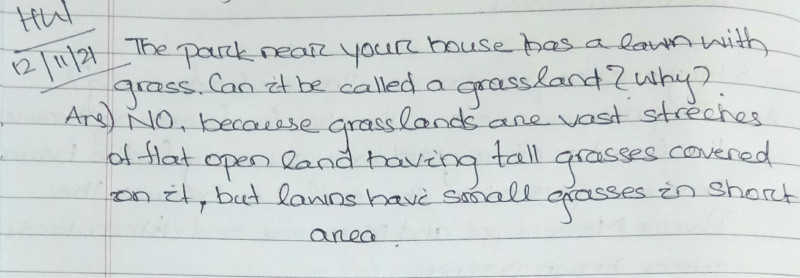 HW
12/11/21 The park near your house has a lawn with
grass. Can it be called a grassland? Why?
Ans) NO, because grasslands are vast streches
of flat open land having tall grasses covered
on it, but lawns have small grasses in short
area.